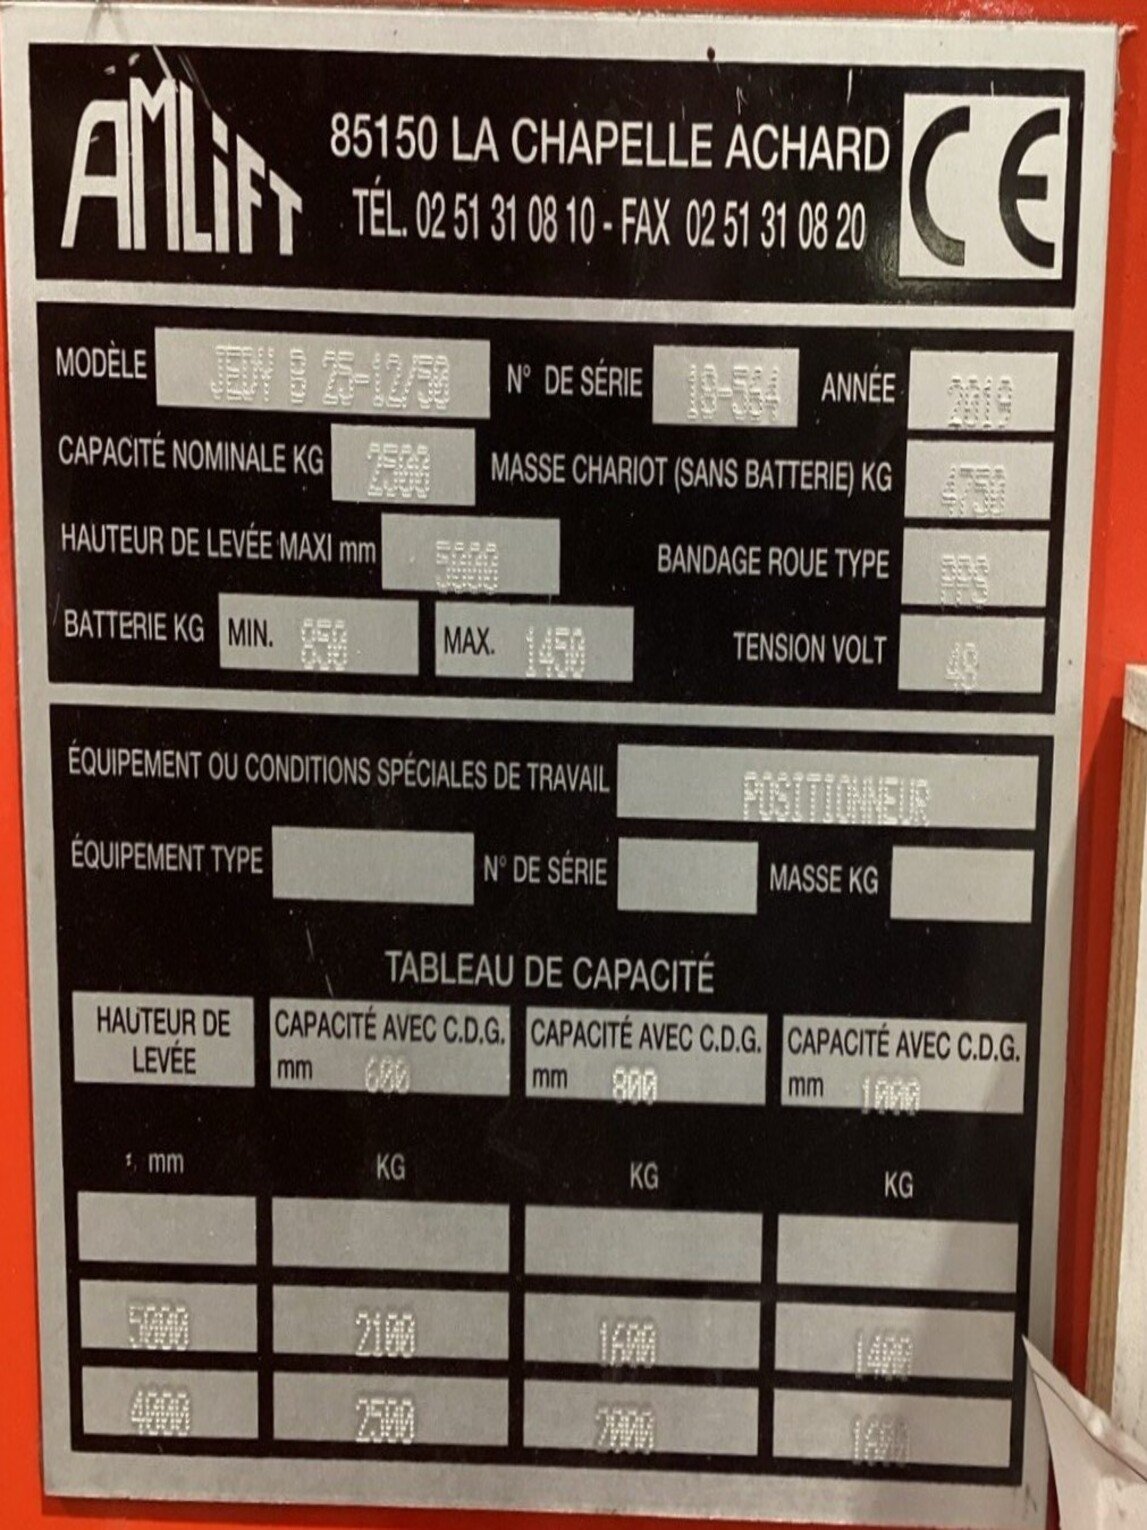 AMLIFT
85150 LA CHAPELLE ACHARD
TÉL. 02 51 31 08 10 - FAX 02 51 31 08 20
CE
MODÈLE JEDY B 25-12/50 N° DE SÉRIE ANNÉE 2019
CAPACITÉ NOMINALE KG 2500 MASSE CHARIOT (SANS BATTERIE) KG 4750
HAUTEUR DE LEVÉE MAXI mm 5000 BANDAGE ROUE TYPE PPS
BATTERIE KG MIN. 850 MAX. 1450 TENSION VOLT 48
ÉQUIPEMENT OU CONDITIONS SPÉCIALES DE TRAVAIL POSITIONNEUR
ÉQUIPEMENT TYPE N° DE SÉRIE MASSE KG
TABLEAU DE CAPACITÉ
HAUTEUR DE LEVÉE CAPACITÉ AVEC C.D.G. mm 600 CAPACITÉ AVEC C.D.G. mm 800 CAPACITÉ AVEC C.D.G. mm 1000
mm KG KG KG
5000 2100 1600 1400
4000 2500 2000 1600